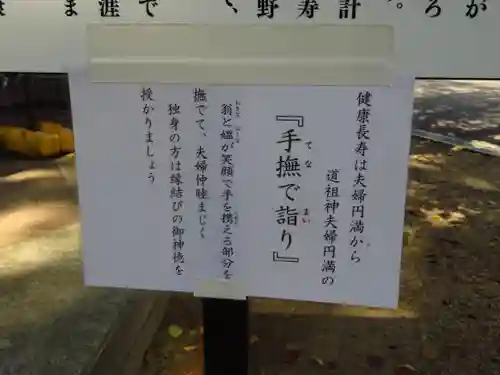 健康長寿は夫婦円満から
道祖神夫婦円満の
『手撫で詣り』
翁と媼が笑顔で手を携える部分を
撫でて、夫婦仲睦まじく
独身の方は縁結びの御神徳を
授かりましょう